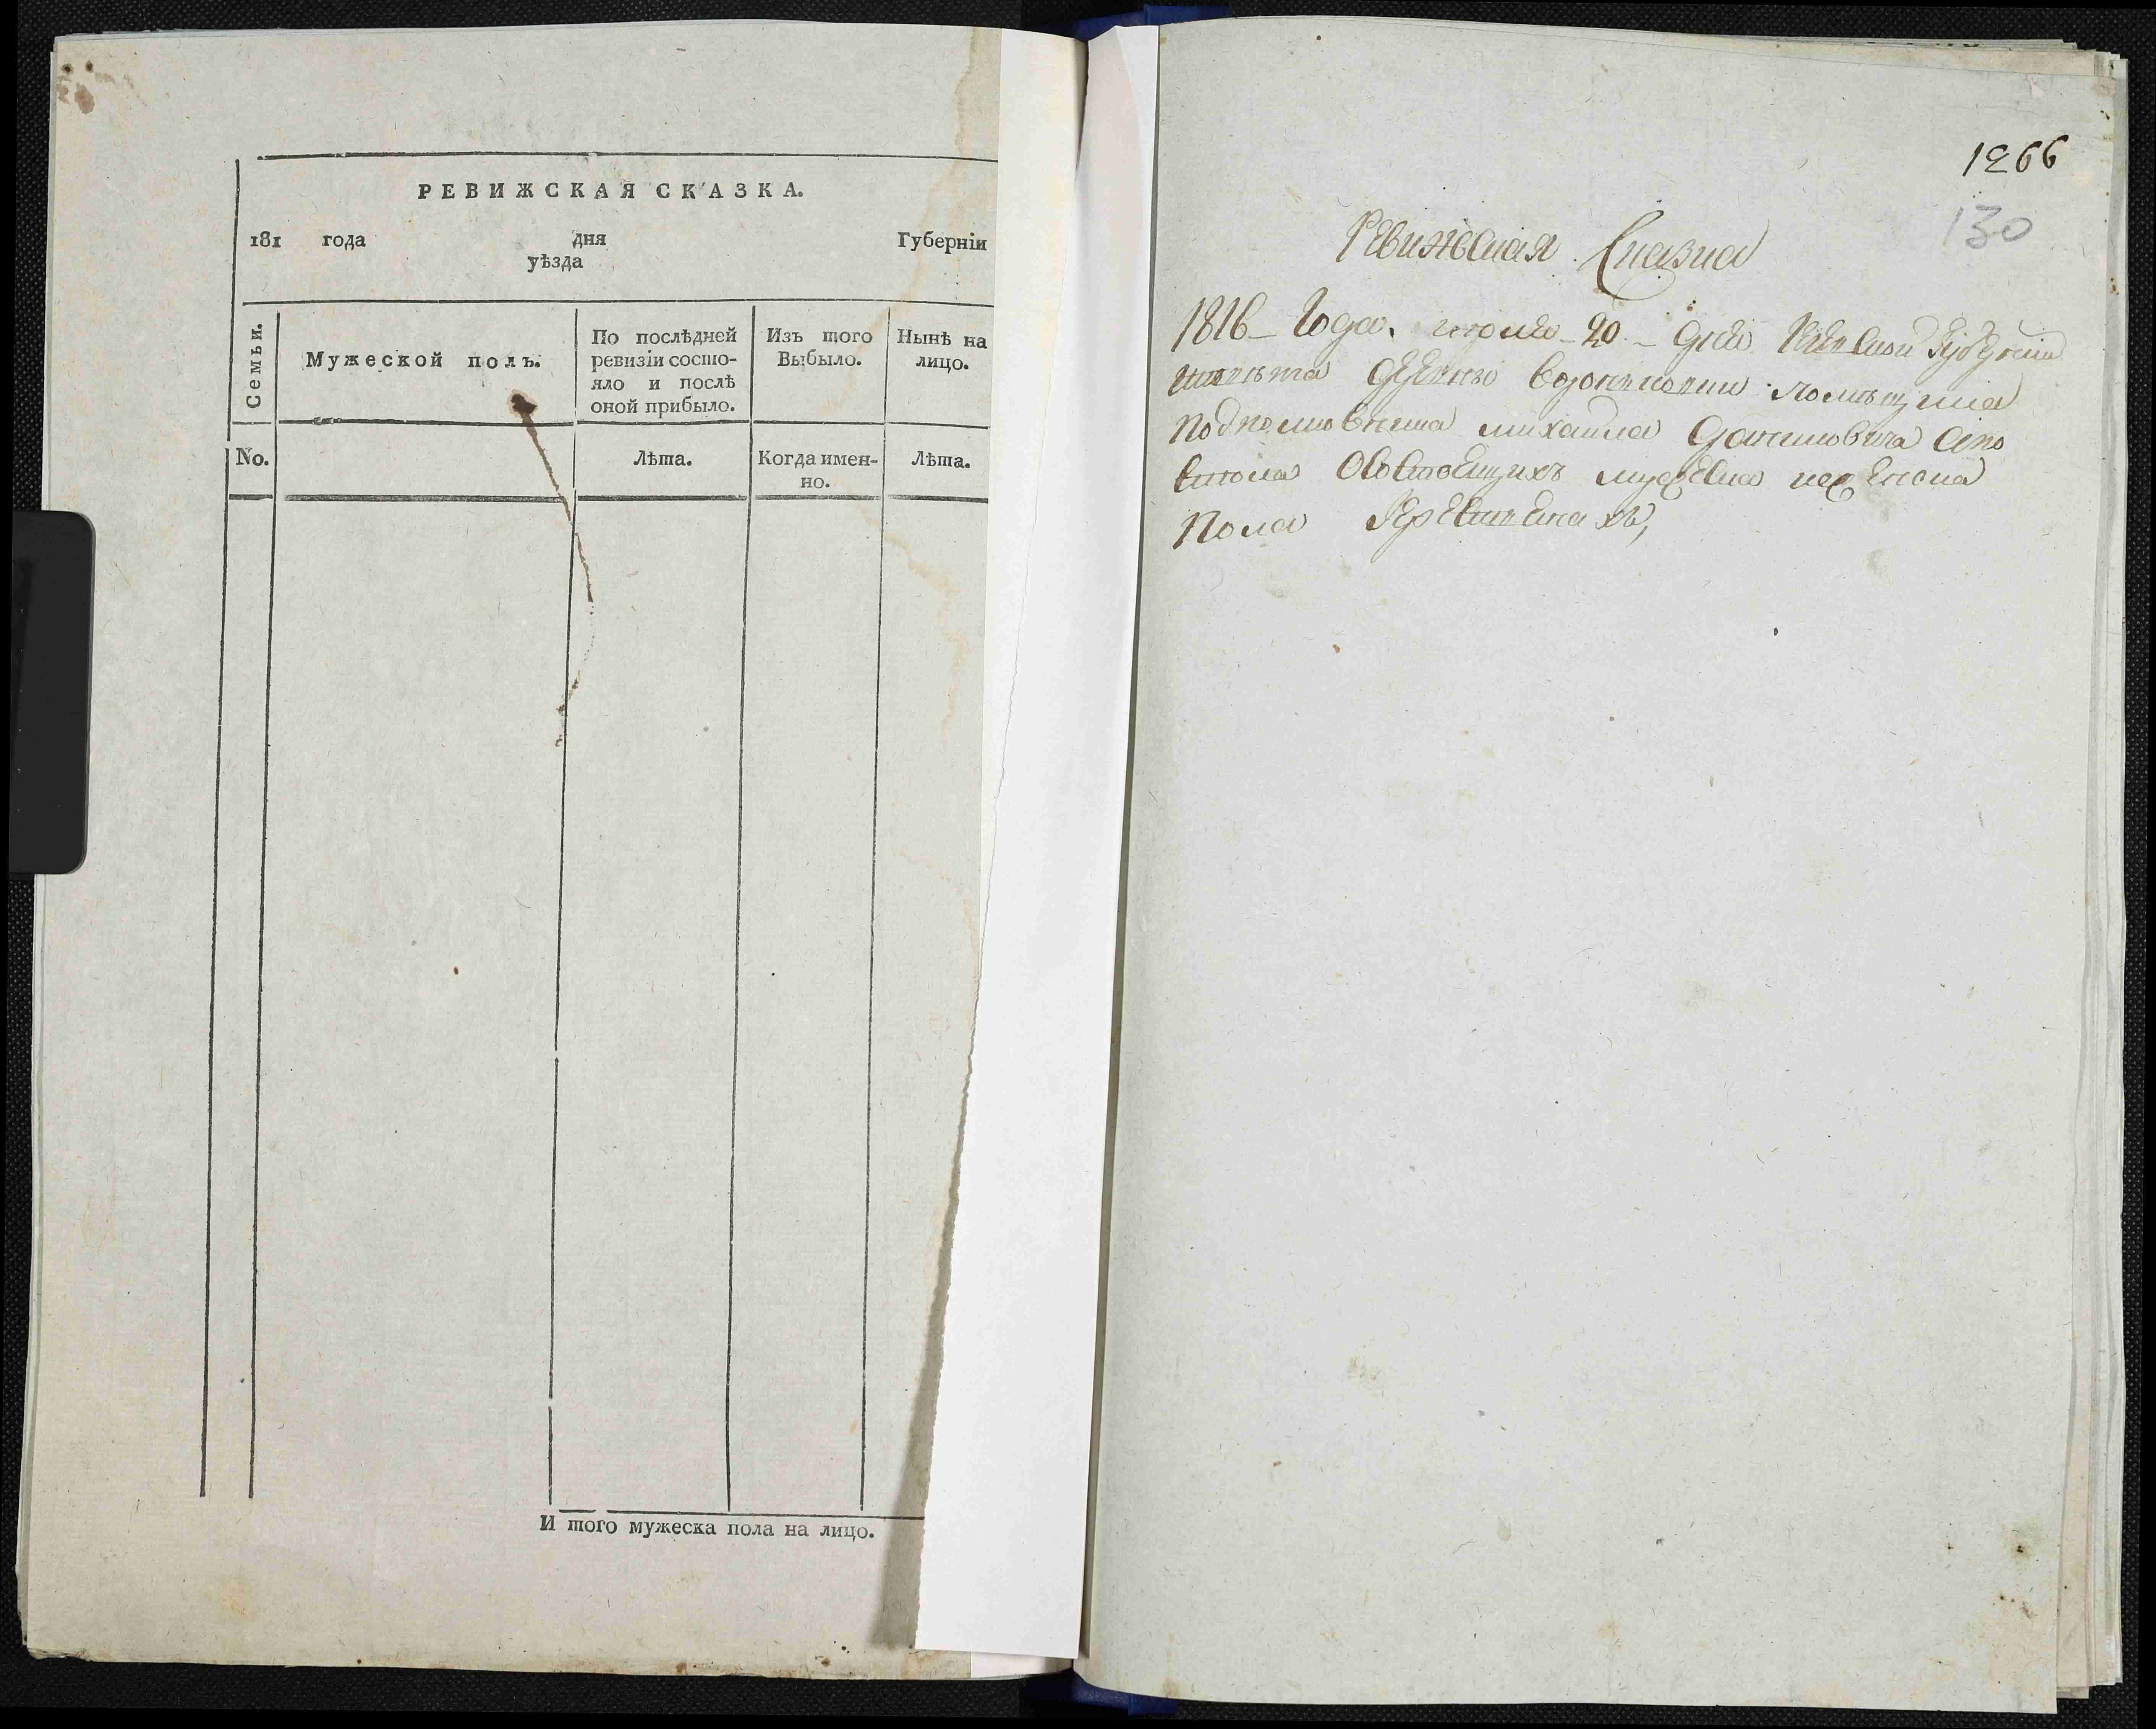 РЕВИЖСКАЯ СКАЗКА.
181 года дня Губерніи
уѣзда
Семьи.
Мужеской полъ.
По послѣдней
ревизіи состо-
яло и послѣ
оной прибыло.
Изъ того
Выбыло.
Нынѣ на
лицо.
No.
Лѣта.
Когда имен-
но.
Лѣта.
И того мужеска пола на лицо.
1266
130
Ревижская Сказка
1816 – Года. – 20 – дня Губернии
помѣщика
подполковника михаила Даниловича апо
стола Осостоящихъ мужеска иженска
пола